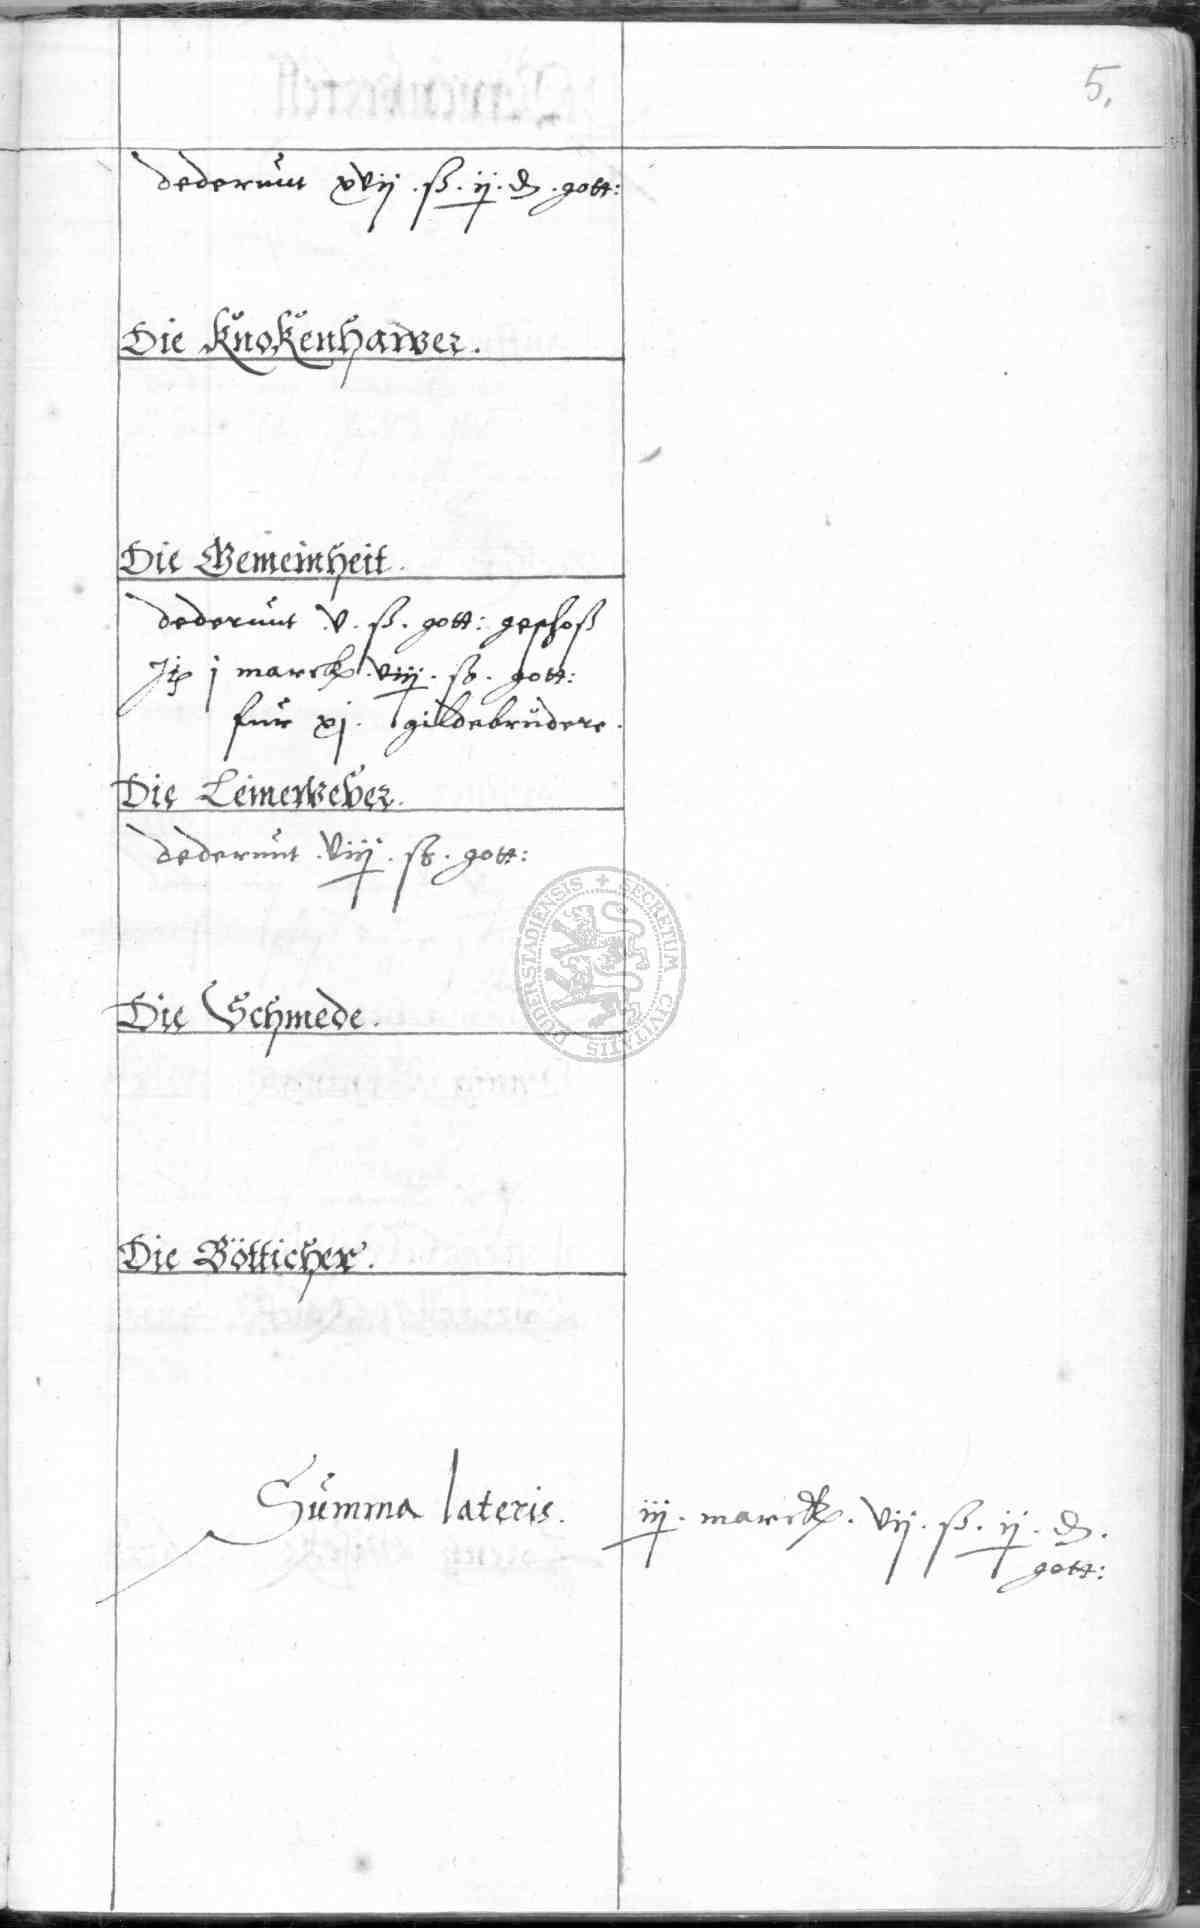 5.
dederunt xvij . ß . ij . ₰ . gott:
Die Knokenhawer.
Die Gemeinheit.
dederunt v . ß . gott: geschoß
Jtꝫ j marck viij . ß . gott:
fur xj . gildebrüdere.
Die Leinewever.
dederunt . viij . ß . gott:
SECRETUM CIVITATIS DUDERSTADIENSIS
Die Schmede.
Die Bötticher.
Summa lateris. iij . marck . vij . ß . ij . ₰ .
gott: